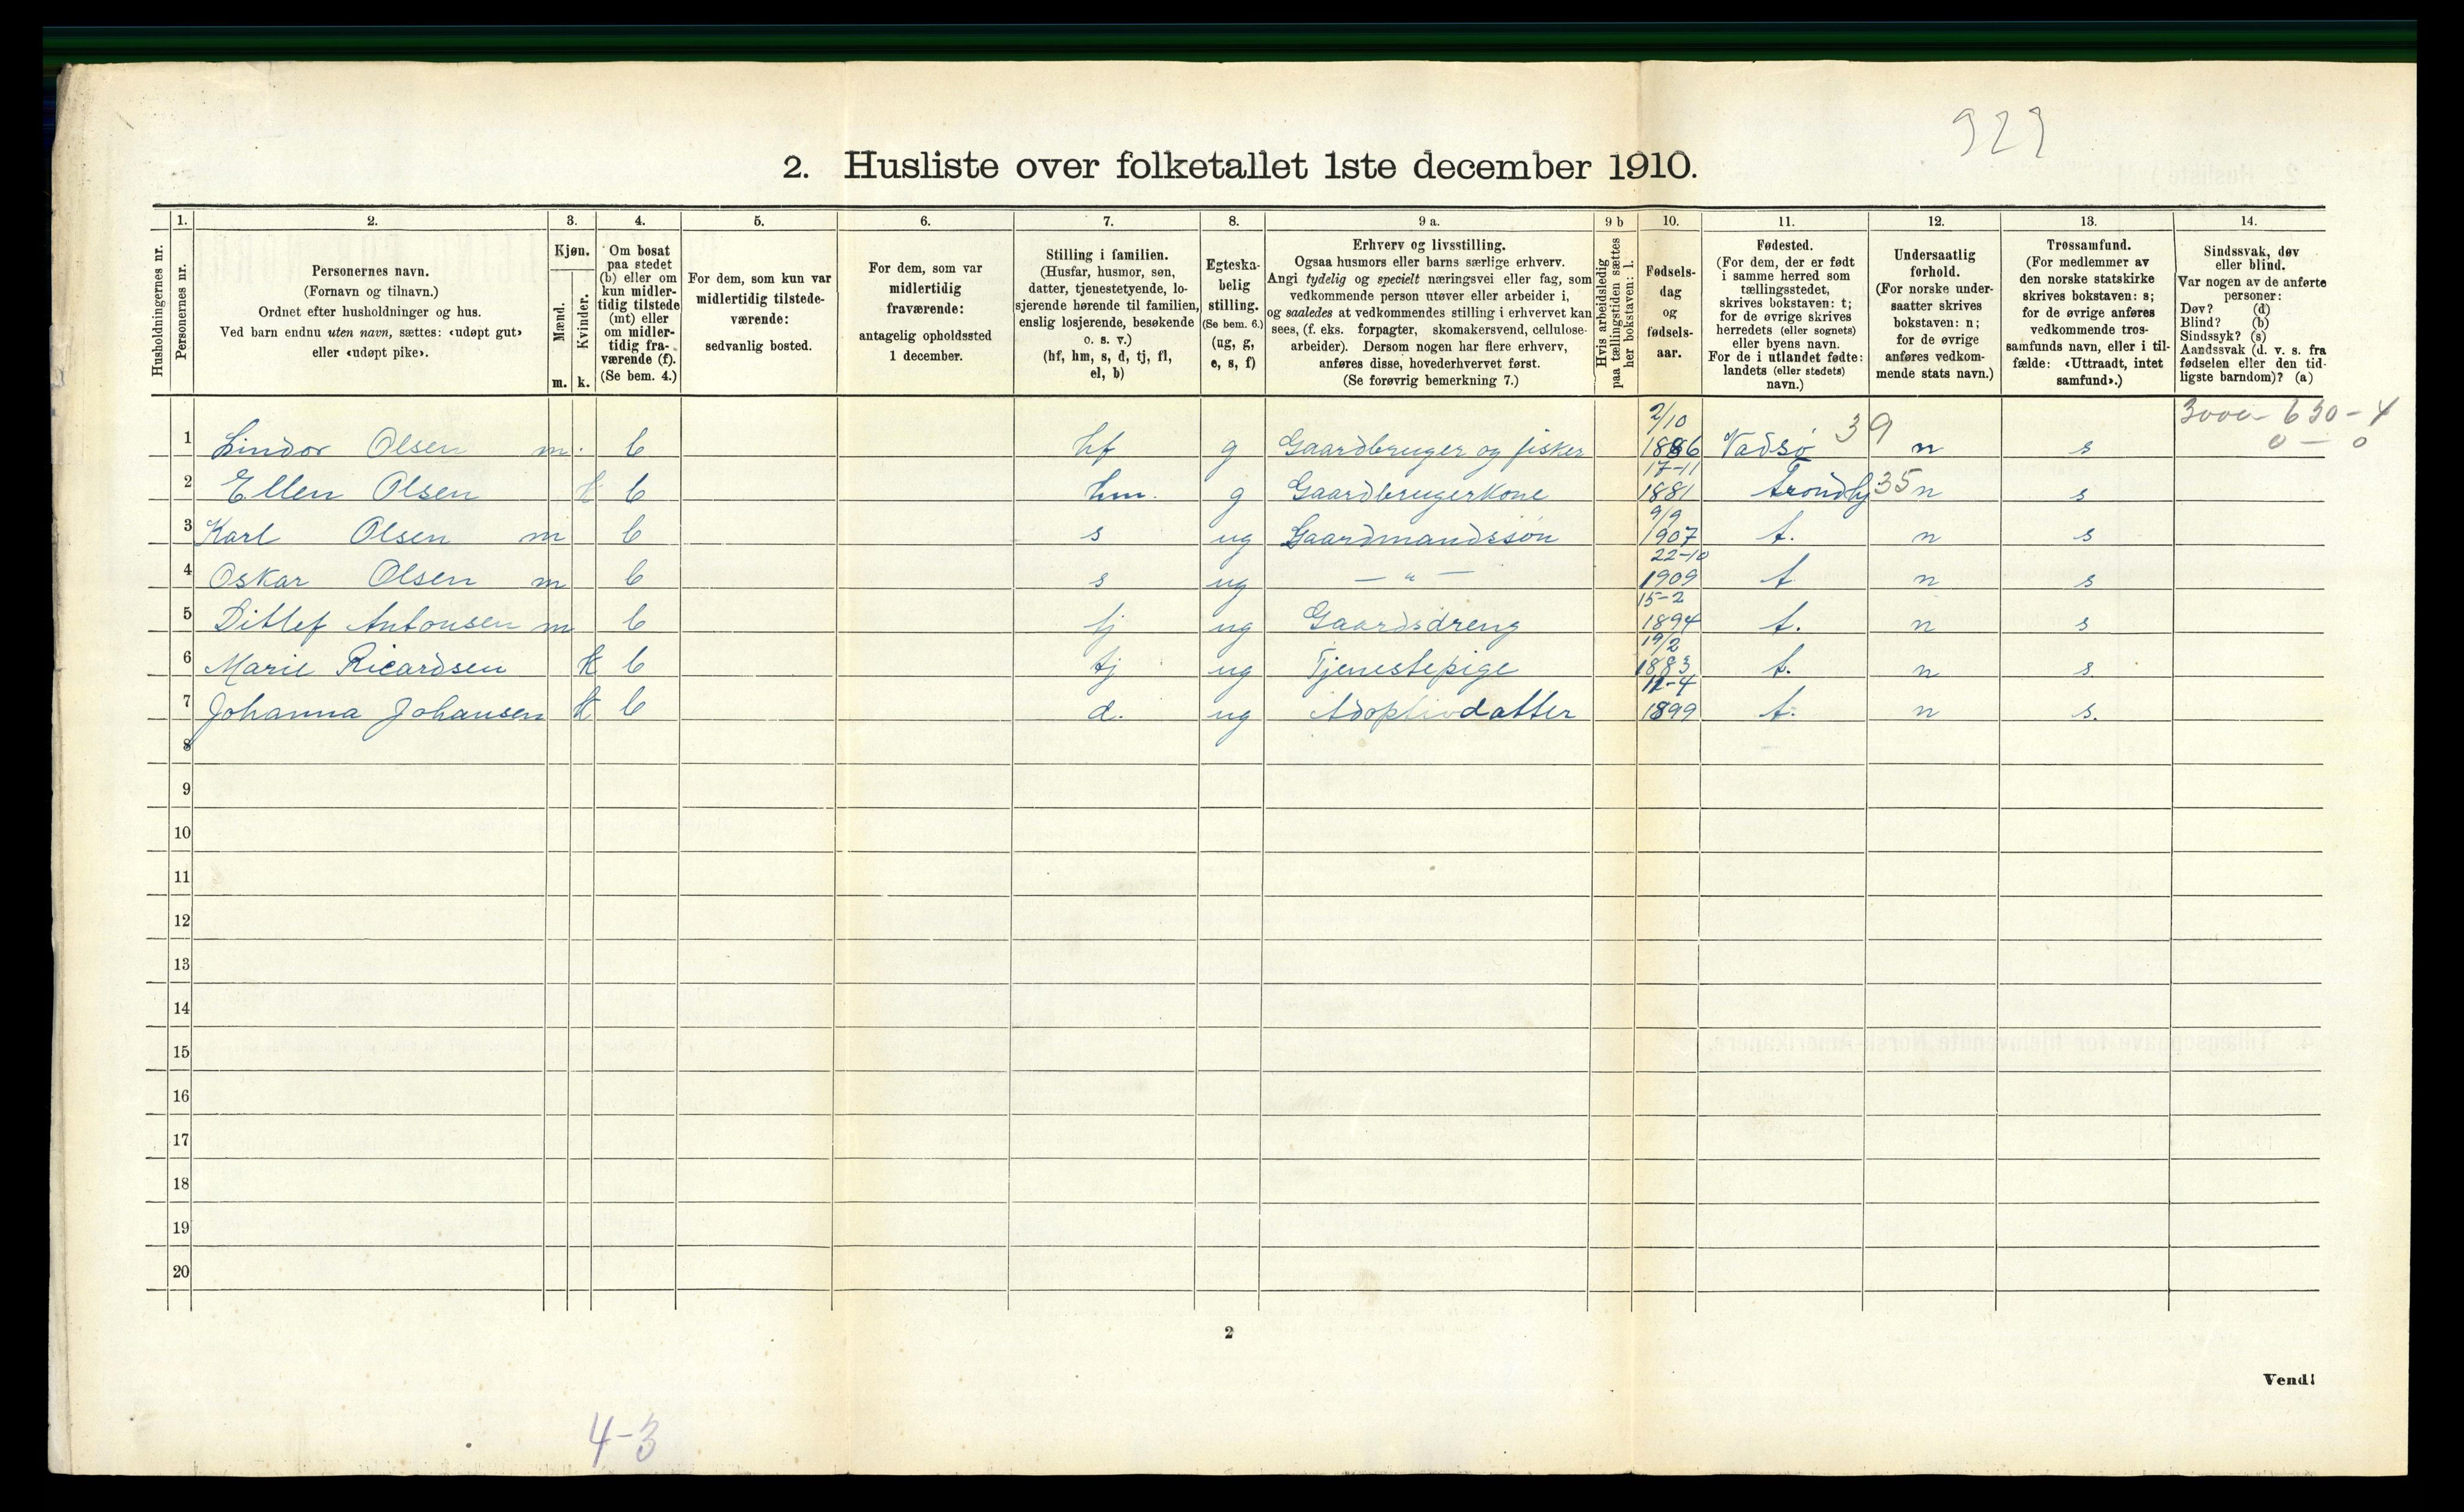 323
2. Husliste over folketallet 1ste december 1910.
Husholdningernes nr.
1. Personernes nr.
2. Personernes navn.
(Fornavn og tilnavn.)
Ordnet efter husholdninger og hus.
Ved barn endnu uten navn, sættes: «udøpt gut»
eller «udøpt pike».
3. Kjøn.
Mænd. m.
Kvinder. k.
4. Om bosat
paa stedet
(b) eller om
kun midler-
tidig tilstede
(mt) eller
om midler-
tidig fra-
værende (f).
(Se bem. 4.)
5. For dem, som kun var
midlertidig tilstede-
værende:
sedvanlig bosted.
6. For dem, som var
midlertidig
fraværende:
antagelig opholdssted
1 december.
7. Stilling i familien.
(Husfar, husmor, søn,
datter, tjenestetyende, lo-
sjerende hørende til familien,
enslig losjerende, besøkende
o. s. v.)
(hf, hm, s, d, tj, fl,
el, b)
8. Egteska-
belig
stilling.
(Se bem. 6.)
(ug, g,
e, s, f)
9 a. Erhverv og livsstilling.
Ogsaa husmors eller barns særlige erhverv.
Angi tydelig og specielt næringsvei eller fag, som
vedkommende person utøver eller arbeider i,
og saaledes at vedkommendes stilling i erhvervet kan
sees, (f. eks. forpagter, skomakersvend, cellulose-
arbeider). Dersom nogen har flere erhverv,
anføres disse, hovederhvervet først.
(Se forøvrig bemerkning 7.)
9 b Hvis arbeidsledig
paa tællingstiden sættes
her bokstaven: l.
10. Fødsels-
dag
og
fødsels-
aar.
11. Fødested.
(For dem, der er født
i samme herred som
tællingsstedet,
skrives bokstaven: t;
for de øvrige skrives
herredets (eller sognets)
eller byens navn.
For de i utlandet fødte:
landets (eller stedets)
navn.)
12. Undersaatlig
forhold.
(For norske under-
saatter skrives
bokstaven: n;
for de øvrige
anføres vedkom-
mende stats navn.)
13. Trossamfund.
(For medlemmer av
den norske statskirke
skrives bokstaven: s;
for de øvrige anføres
vedkommende tros-
samfunds navn, eller i til-
fælde: «Uttraadt, intet
samfund».)
14. Sindssvak, døv
eller blind.
Var nogen av de anførte
personer:
Døv? (d)
Blind? (b)
Sindssyk? (s)
Aandssvak (d. v. s. fra
fødselen eller den tid-
ligste barndom)? (a)
630 - 4
0 — 0
1 Lindor Olsen m. b hf g Gaardbruger og fisker 2/10 1886 Vadsø 39 n s
2 Ellen Olsen k b hm. g Gaardbrugerkone 17-11 1881 Trondhj 35 n s
3 Karl Olsen m b s ug Gaardmandssøn 9/9 1907 t. n s
4 Oskar Olsen m b s ug — " — 22-10 1909 t n s
5 Ditlef Antonsen m b tj ug Gaardsdreng 15-2 1894 t. n s
6 Marie Ricardsen k b tj ug Tjenestepige 19/2 1883 t. n s
7 Johanna Johansen k b d. ug Adoptivdatter 12-4 1899 t. n s.
8
9
10
11
12
13
14
15
16
17
18
19
20
2
Vend!
4-3